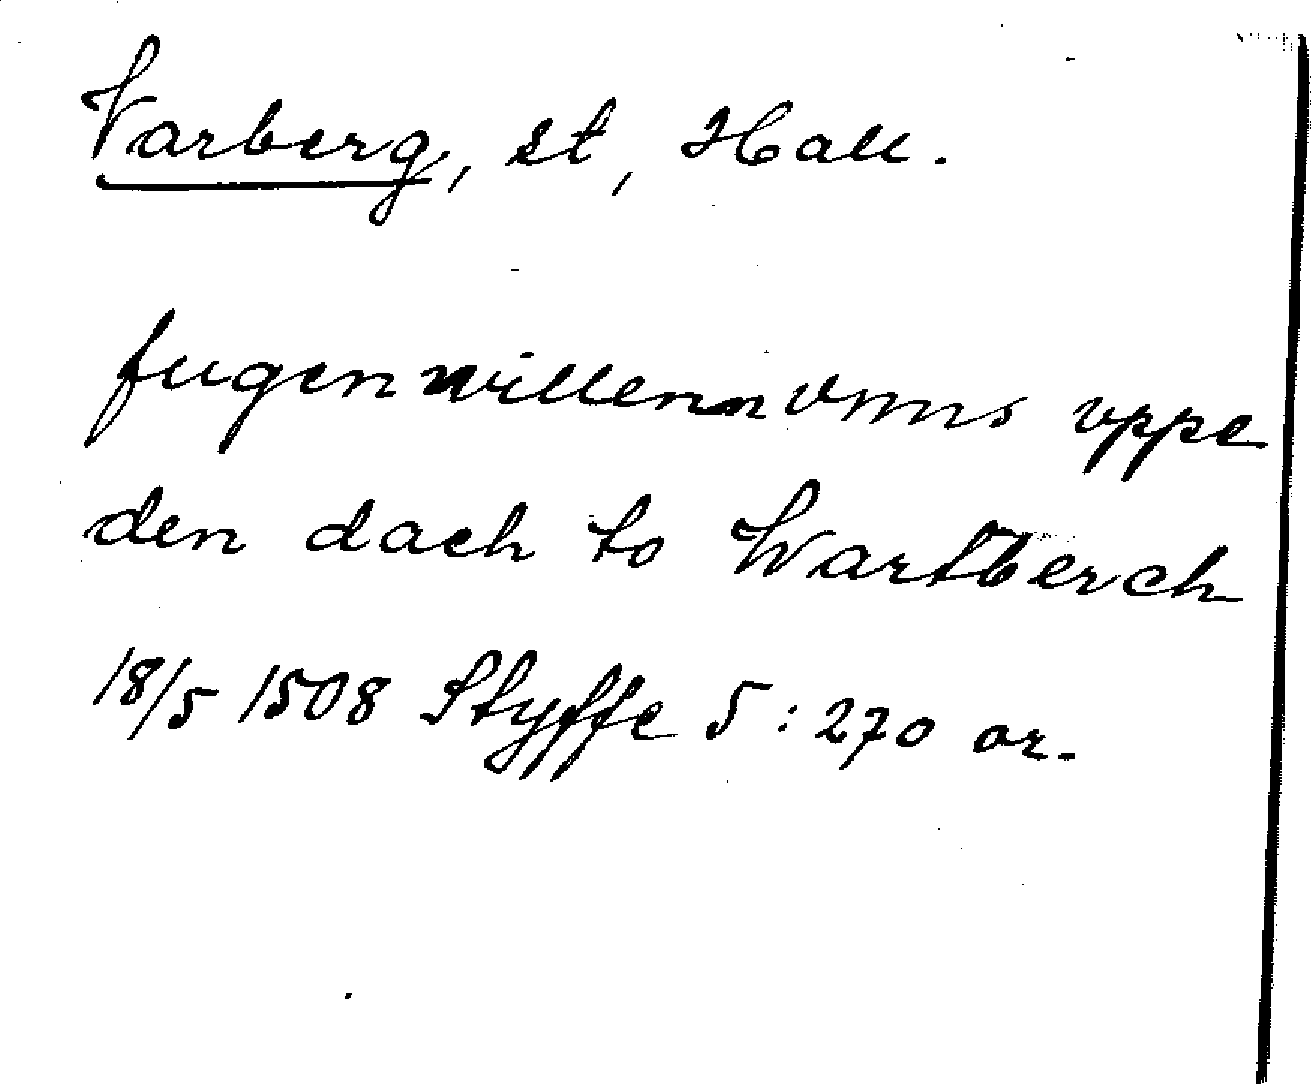 Varberg, st, Hall.
fugen willenn vnns vppe
den dach to Wartberch
18/5 1508 Styffe 5:270 or.